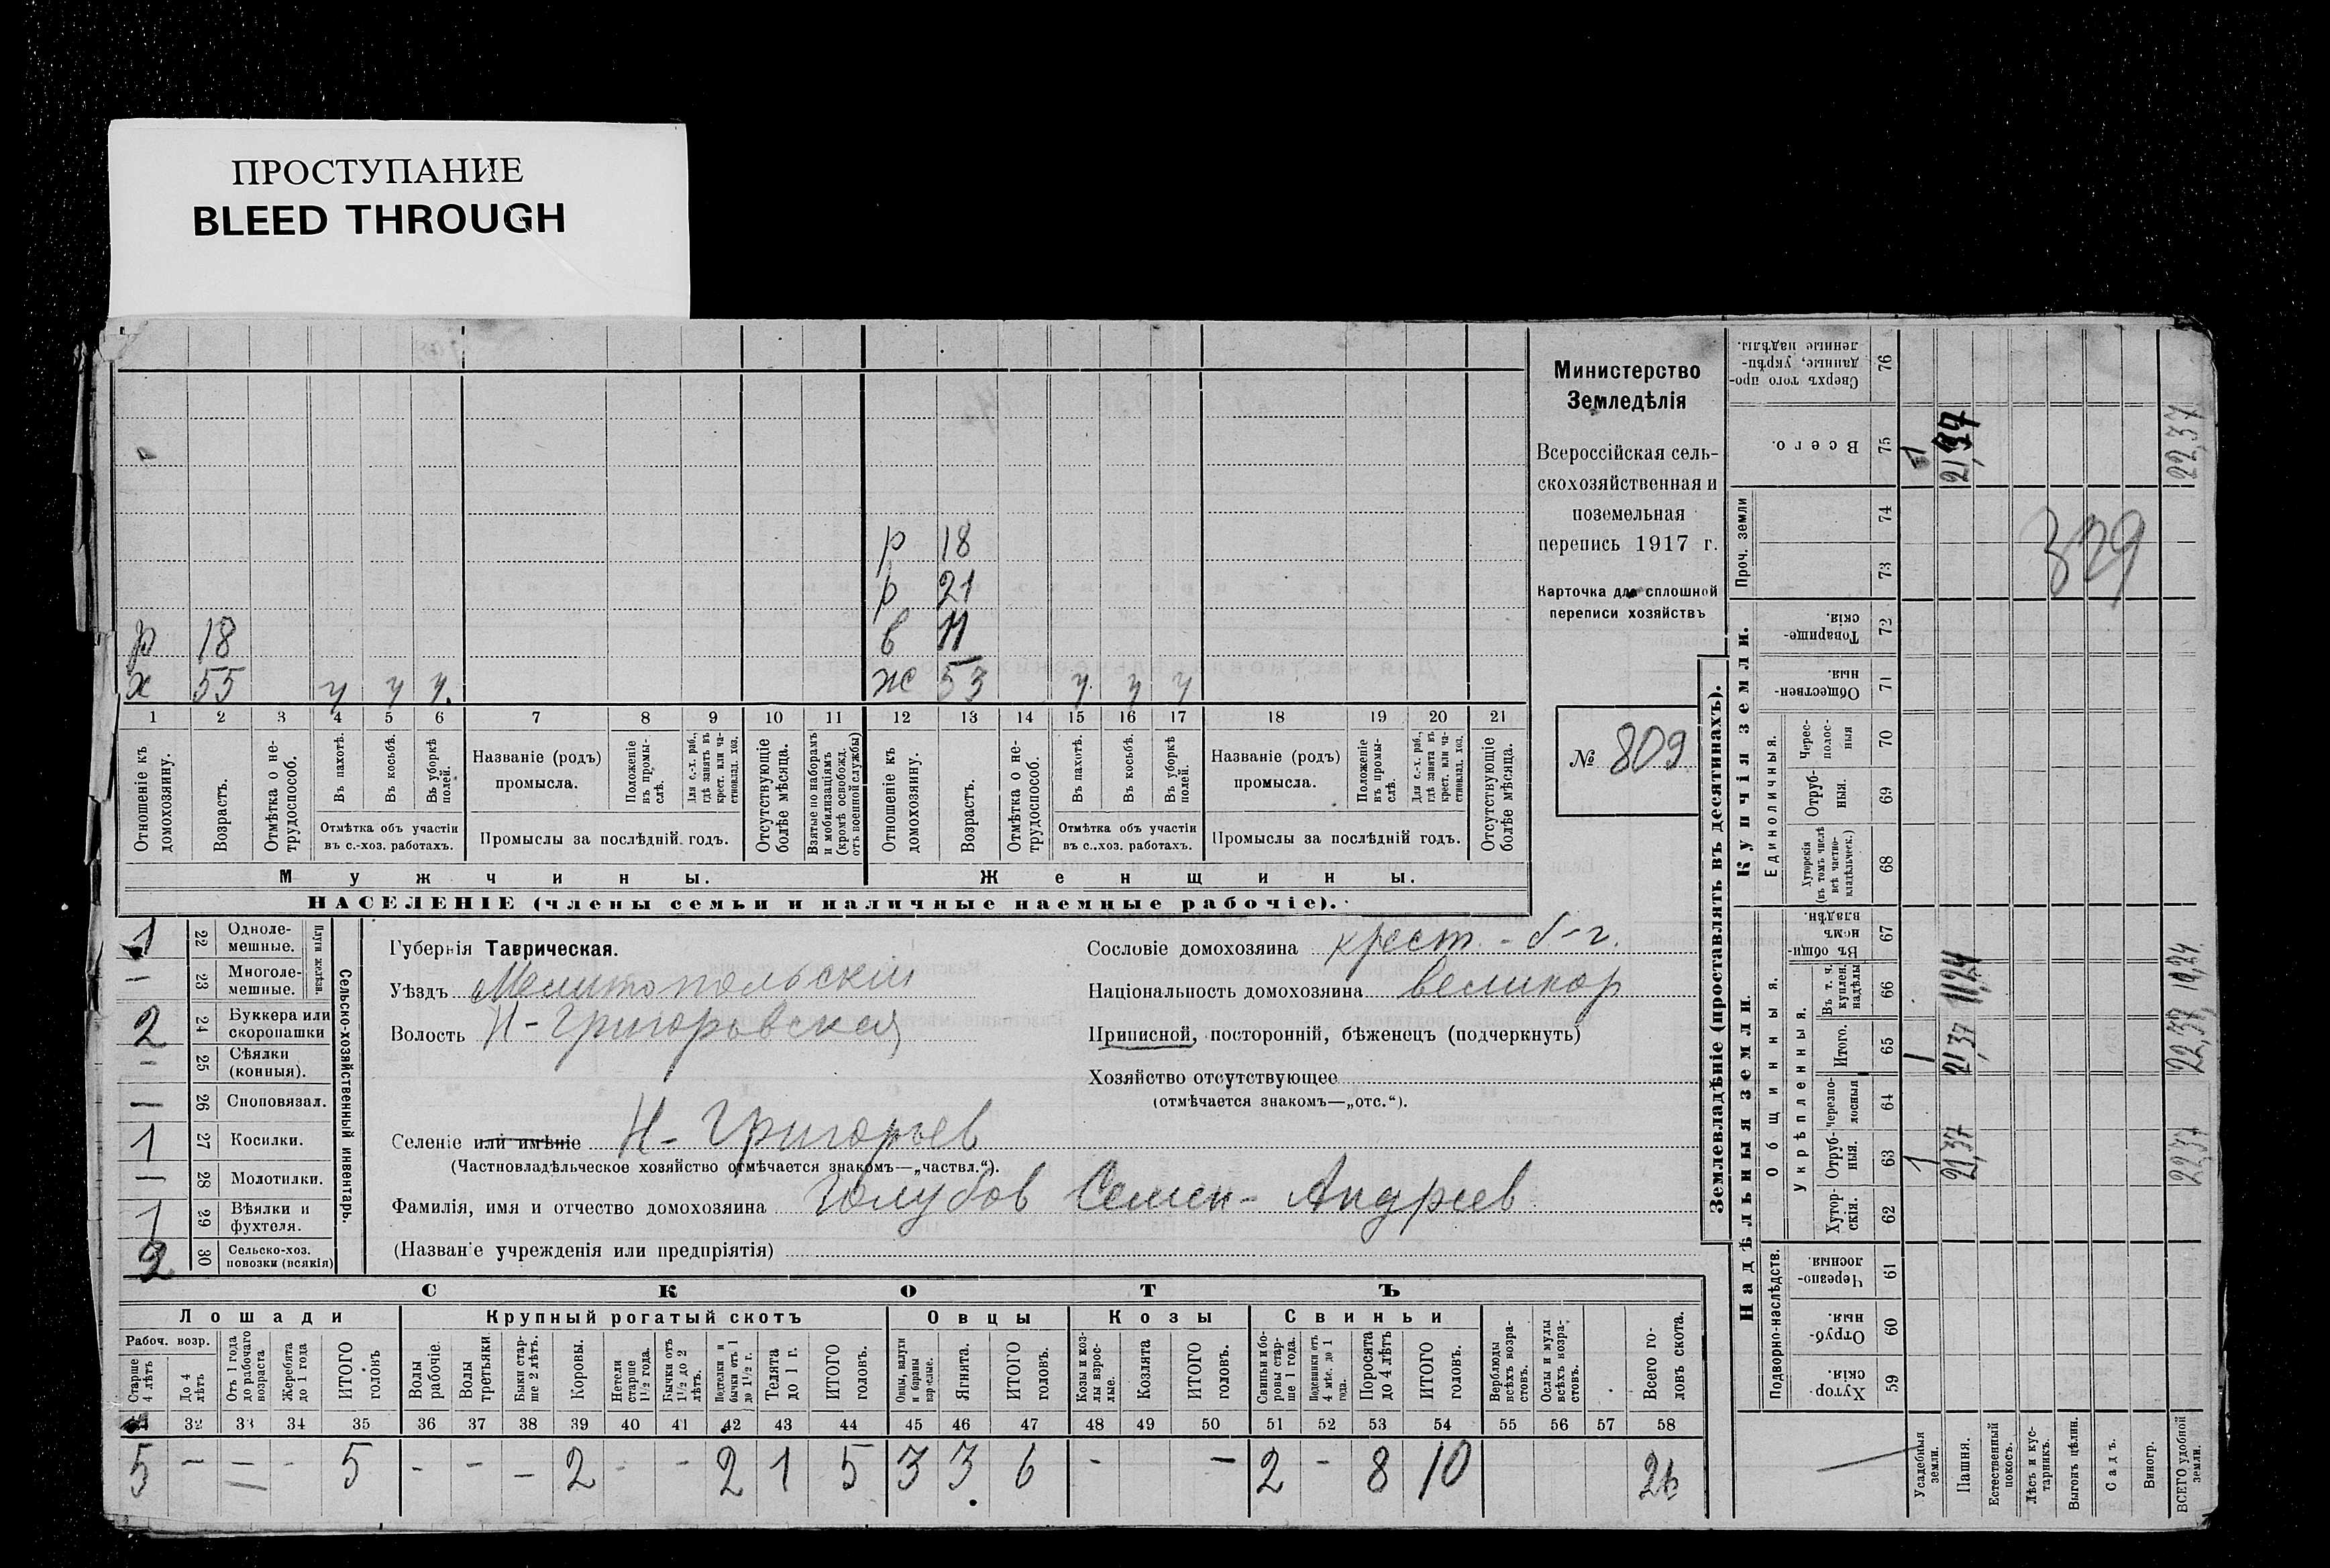 ПРОСТУПАНИЕ
BLEED THROUGH
р 18
р 21
р 18 в 11
х 55 у у у. ж 53 у у у
1 2 3 4 5 6 7 8 9 10 11 12 13 14 15 16 17 18 19 20 21
Отношеніе къ домохозяину.
Возрастъ.
Отмѣтка о не-трудоспособ.
Въ пахотѣ.
Въ косьбѣ.
Въ уборкѣ полей.
Отмѣтка объ участіи
въ с.-хоз. работахъ.
Названіе (родъ)
промысла.
Положеніе въ промы-слѣ.
Для с.-х. раб., гдѣ занятъ въ крест. или ча-стновлад. хоз.
Промыслы за послѣдній годъ.
Отсутствующіе болѣе мѣсяца.
Взятые по наборамъ и мобилизаціямъ (кромѣ освобожд. отъ военной службы)
Отношеніе къ домохозяину.
Возрастъ.
Отмѣтка о не-трудоспособ.
Въ пахотѣ.
Въ косьбѣ.
Въ уборкѣ полей.
Отмѣтка объ участіи
въ с..хоз. работахъ.
Названіе (родъ)
промысла.
Положеніе въ промы-слѣ.
Для с.-х. раб., гдѣ занята въ крест. или ча-стновлад. хоз.
Промыслы за послѣдній годъ.
Отсутствующіе болѣе мѣсяца.
Мужчины.
Женщины.
НАСЕЛЕНІЕ (члены семьи и наличные наемные рабочіе).
Министерство
Земледѣлія
Всероссійская сель-
скохозяйственная и
поземельная
перепись 1917 г.
Карточка для сплошной
переписи хозяйствъ
№ 809
1 22 Одноле-мешные.
— 23 Многоле-мешные.
Плуги желѣзн.
2 24 Буккера или скоропашки
— 25 Сѣялки (конныя).
— 26 Сноповязал.
1 27 Косилки.
— 28 Молотилки.
1 29 Вѣялки и фухтеля.
2 30 Сельско-хоз. повозки (всякія)
Сельско-хозяйственный инвентарь.
Губернія Таврическая.
Уѣздъ Мелитопольскій
Волость Н-Григоровская
Селеніе или имѣніе Н- Григорьев
(Частновладѣльческое хозяйство отмѣчается знакомъ—„частвл.“).
Фамилія, имя и отчество домохозяина Голубов Семен- Андреев
(Названіе учрежденія или предпріятія)
Сословіе домохозяина крест. - б-г.
Національность домохозяина великор
Приписной, посторонній, бѣженецъ (подчеркнуть)
Хозяйство отсутствующее
(отмѣчается знакомъ—„отс.“).
СКОТЪ
Лошади
Крупный рогатый скотъ
Овцы
Козы
Свиньи
Рабоч. возр.
Старше 4 лѣтъ
До 4 лѣтъ
Отъ 1 года до рабочаго возраста
Жеребята до 1 года
ИТОГО головъ
Волы рабочіе.
Волы третьяки.
Быки стар-ше 2 лѣтъ.
Коровы.
Нетели старше 1½ года.
Бычки отъ 1½ до 2 лѣтъ.
Подтелки и бычки отъ 1 до 1½ г.
Телята до 1 г.
ИТОГО головъ.
Овцы, валухи и бараны взрослые.
Ягнята.
ИТОГО головъ.
Козы и коз-лы взрос-лые.
Козлята
ИТОГО головъ.
Свиньи и бо-ровы стар-ше 1 года.
Подсвинки отъ 4 мѣс. до 1 года.
Поросята до 4 лѣтъ
ИТОГО головъ.
Верблюды всѣхъ возра-стовъ.
Ослы и мулы всѣхъ возра-стовъ.
Всего го-ловъ скота.
32 33 34 35 36 37 38 39 40 41 42 43 44 45 46 47 48 49 50 51 52 53 54 55 56 57 58
5 - - - 5 - - - 2 - - 2 1 5 3 3 6 - - 2 - 8 10 26
Землевладѣніе (проставлять въ десятинахъ).
Надѣльныя земли.
Купчія земли.
Проч. земли
Подворно-наслѣдств.
Общинныя.
Укрѣпленныя.
Единоличныя.
Сверхъ того про-данные, укрѣп-ленные надѣлы. 76
Всего. 75 1 21,37 22,37
74
73
329
Товарище-скія. 72
Обществен-ныя. 71
Черес-полос-ныя 70
Отруб-ныя. 69
Хуторскія (въ томъ числѣ всѣ частно-владѣльческ.) 68
Въ общин-номъ владѣн. 67
Въ т. ч. куплен. надѣлы 66 11,24 11,24
Итого. 65 1 21,37 22,37
Черезпо-лосныя 64
Отруб-ныя. 63 1 21,37 22,37
Хутор-скія. 62
Черезпо-лосныя 61
Отруб-ныя. 60
Хутор-скія. 59
Усадебныя земли.
Пашня.
Естественный покосъ.
Лѣсъ и кус-тарникъ.
Выгонъ цѣлин.
Садъ.
Виногр.
ВСЕГО удобной земли.